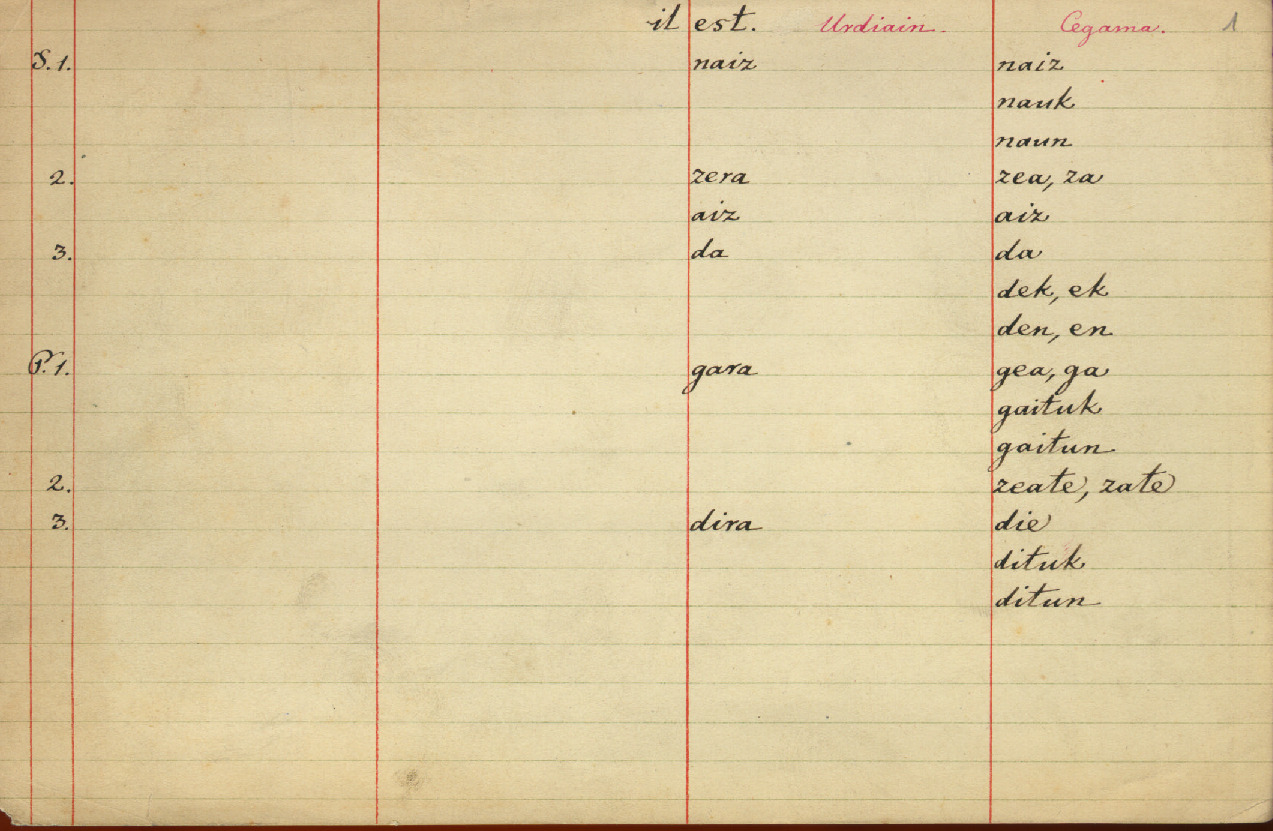 il est. Urdiain. Cegama. 1
S. 1. naiz naiz
nauk
naun
2. zera zea, za
aiz aiz
3. da da
dek, ek
den, en
P. 1. gara gea, ga
gaituk
gaitun
2. zeate, zate
3. dira die
dituk
ditun